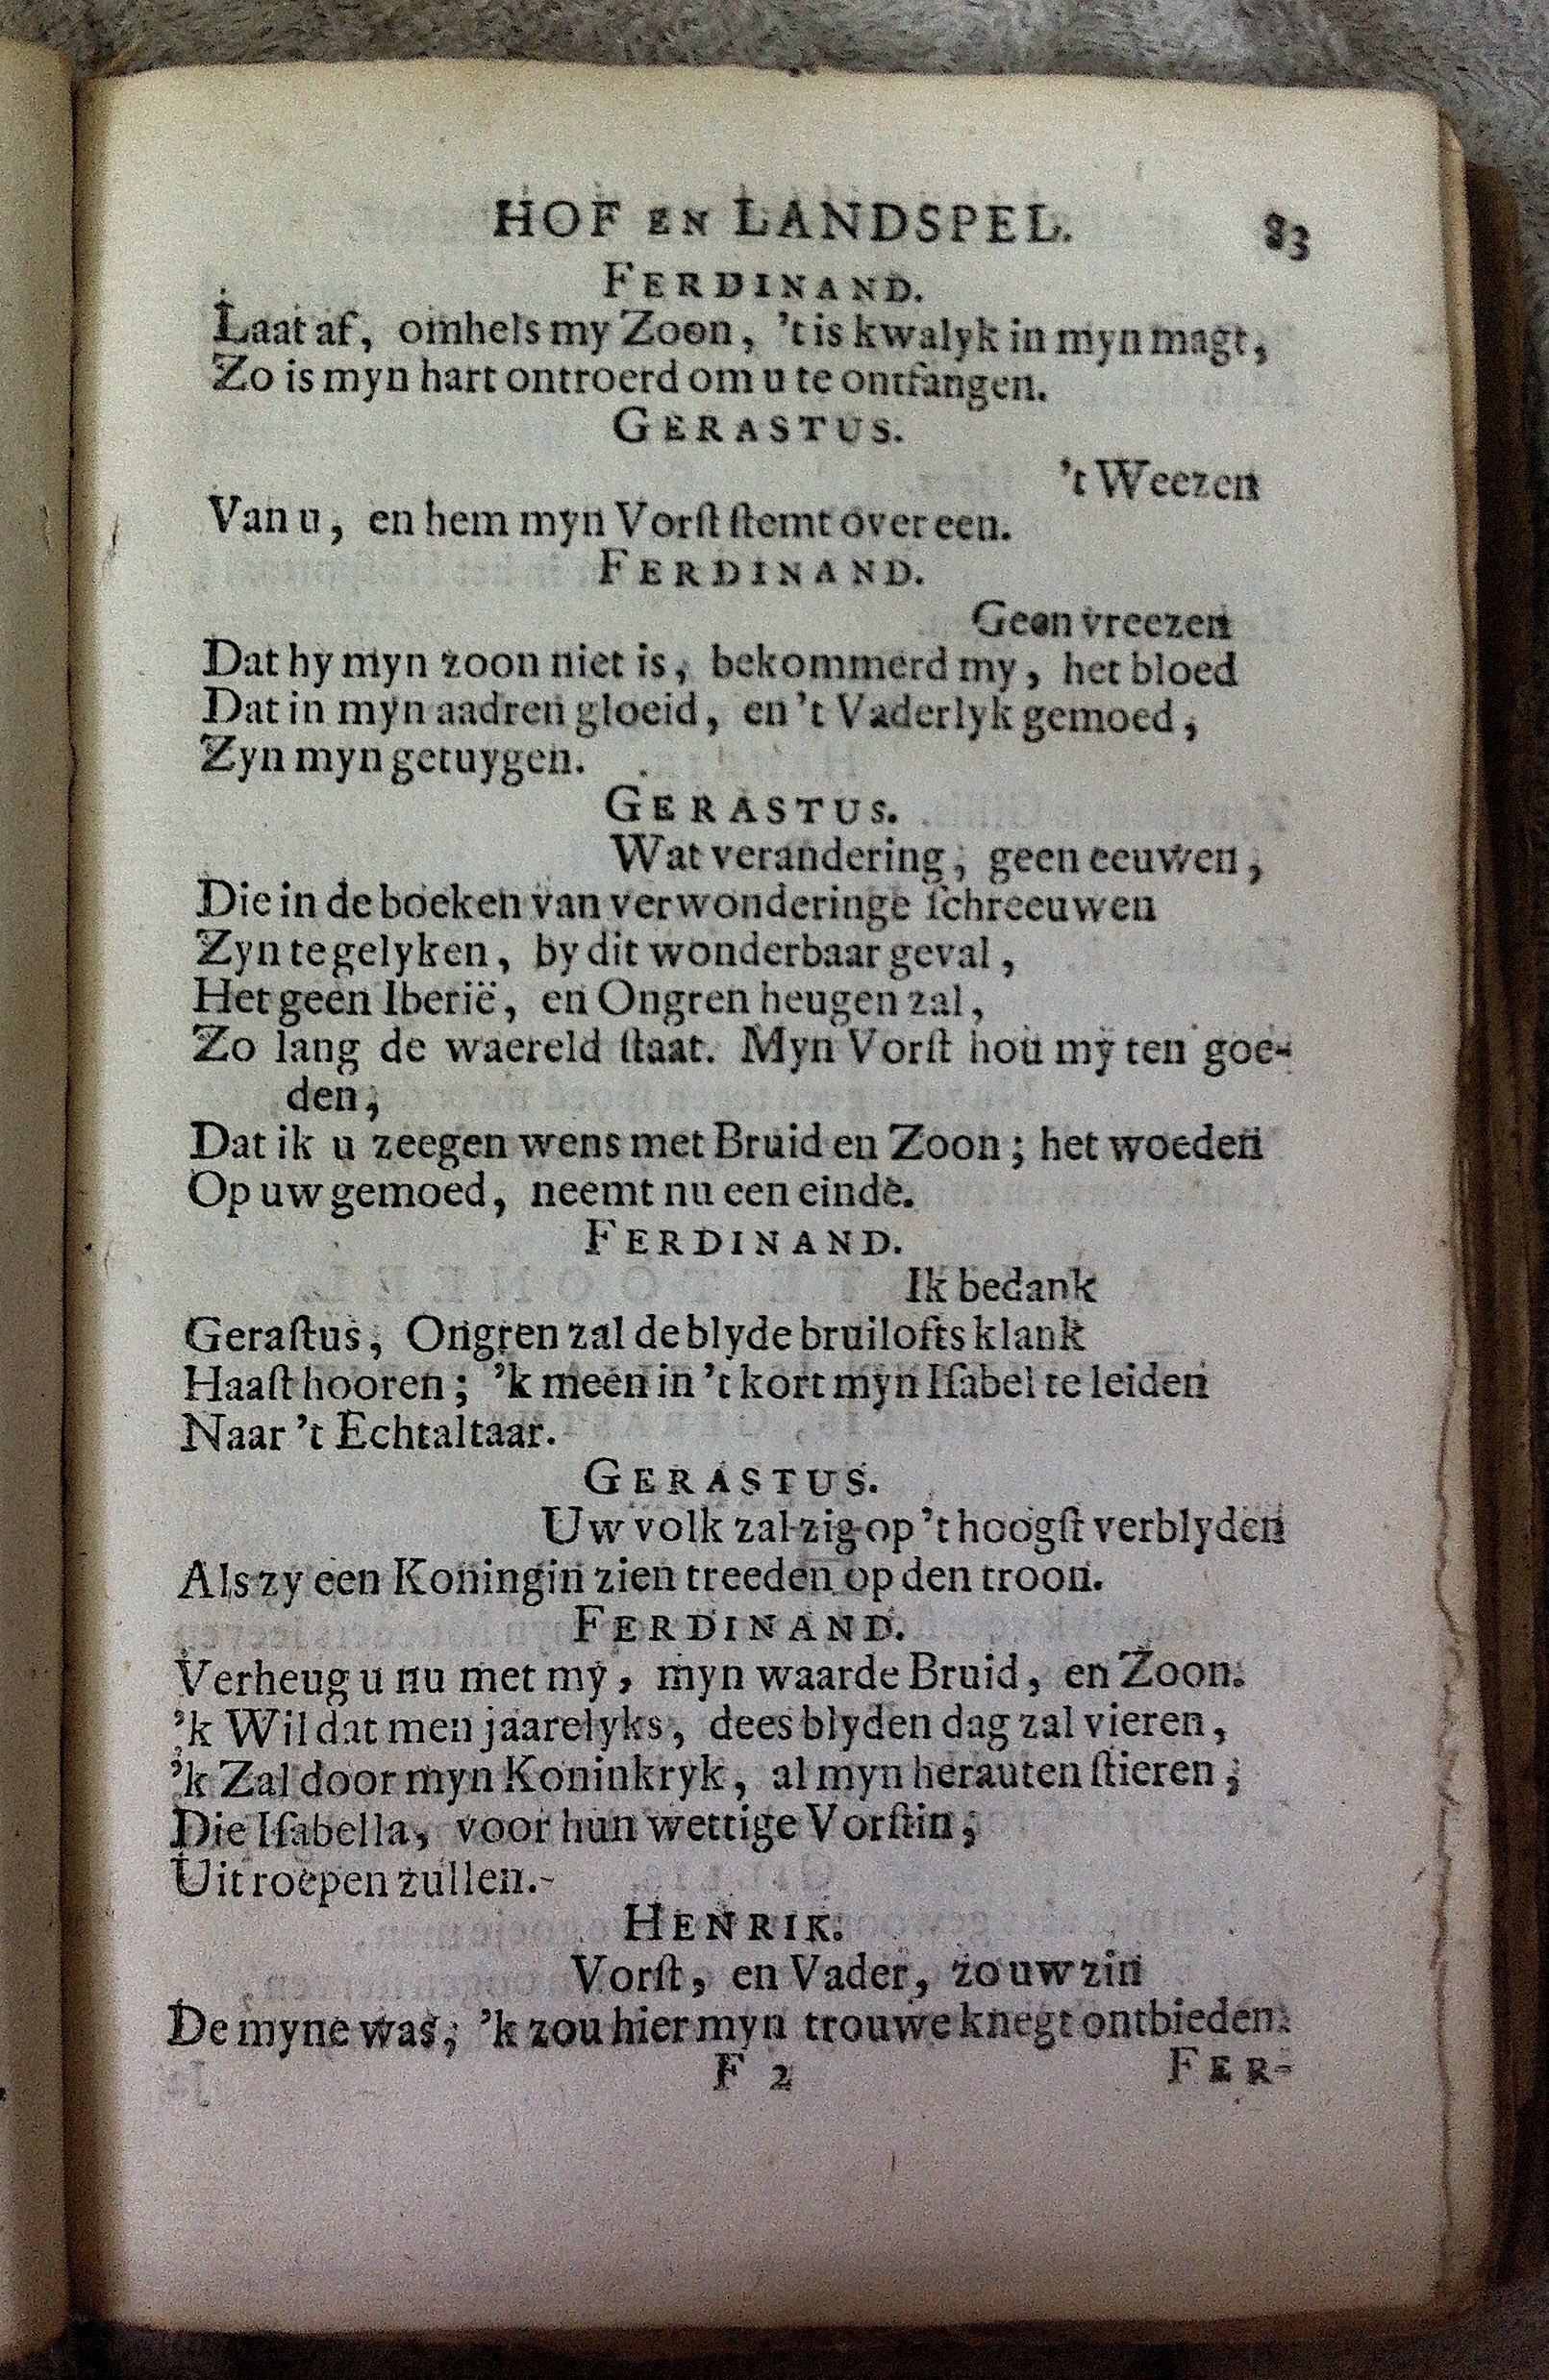 HOF EN LANDSPEL. 83
FERDINAND.
Laat af, omhels my Zoon, 't is kwalyk in myn magt,
Zo is myn hart ontroerd om u te ontfangen.
GERASTUS.
't Weezen
Van u, en hem myn Vorſt ſtemt over een.
FERDINAND.
Geen vreezen
Dat hy myn zoon niet is, bekommerd my, het bloed
Dat in myn aadren gloeid, en 't Vaderlyk gemoed,
Zyn myn getuygen.
GERASTUS.
Wat verandering, geen eeuwen,
Die in de boeken van verwonderinge ſchreeuwen
Zyn te gelyken, by dit wonderbaar geval,
Het geen Iberië, en Ongren heugen zal,
Zo lang de waereld ſtaat. Myn Vorſt hou my ten goe-
den,
Dat ik u zeegen wens met Bruid en Zoon; het woeden
Op uw gemoed, neemt nu een einde.
FERDINAND.
Ik bedank
Geraſtus, Ongren zal de blyde bruilofts klank
Haaſt hooren; 'k meen in 't kort myn Iſabel te leiden
Naar 't Echtaltaar.
GERASTUS.
Uw volk zal zig op 't hoogſt verblyden
Als zy een Koningin zien treeden op den troon.
FERDINAND.
Verheug u nu met my, myn waarde Bruid, en Zoon.
'k Wil dat men jaarelyks, dees blyden dag zal vieren,
'k Zal door myn Koninkryk, al myn herauten ſtieren,
Die Iſabella, voor hun wettige Vorſtin,
Uitroepen zullen.-
HENRIK.
Vorſt, en Vader, zo uw zin
De myne was, 'k zou hier myn trouwe knegt ontbieden.
F 2 FER-